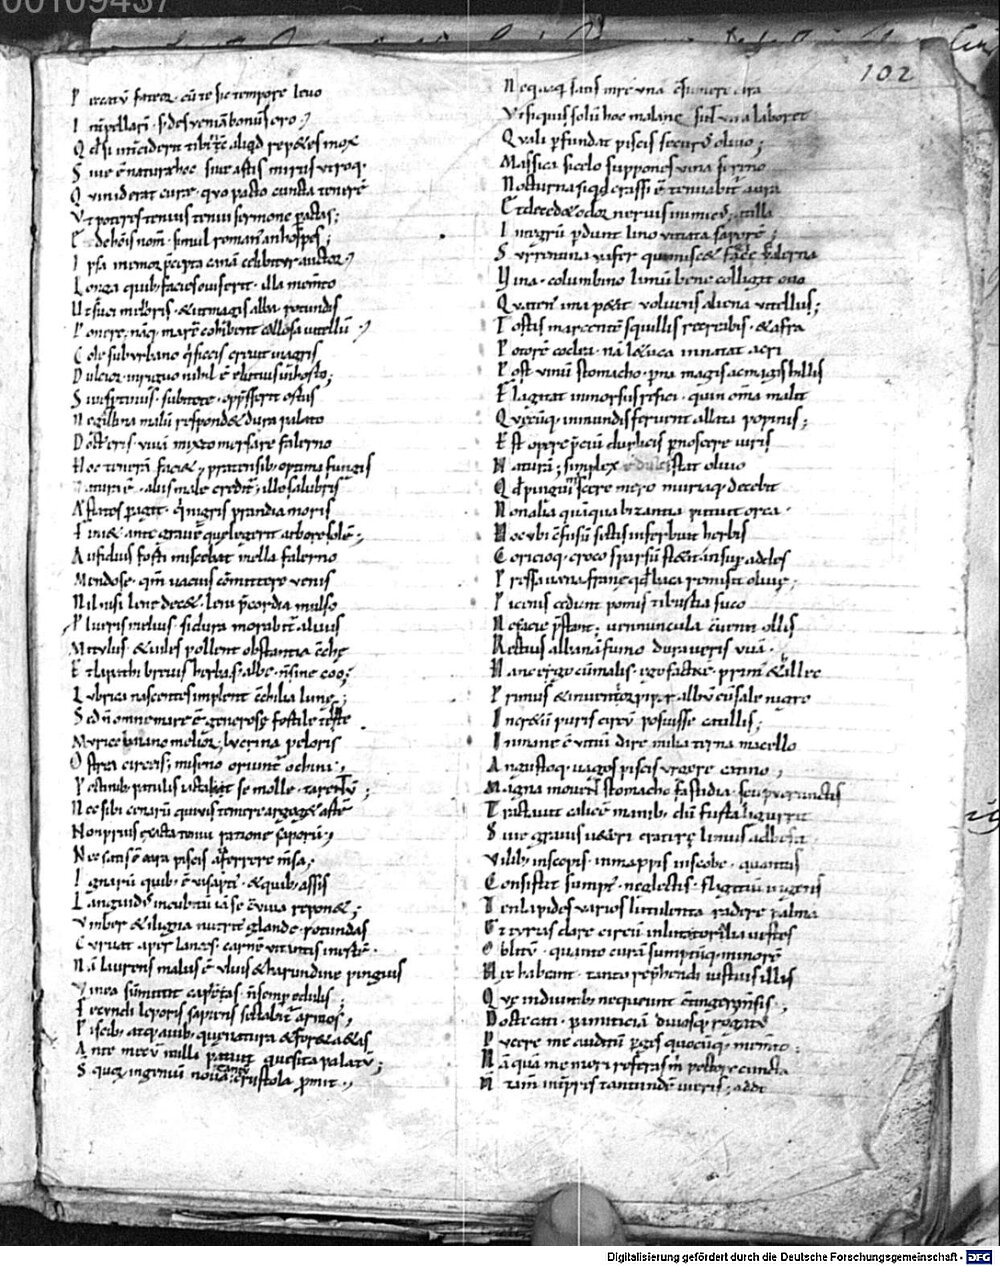 00109437
102
Peccatū fateor. cū te sic tempore levo
Int̄pellarī. s; des veniā bonus oro;
Qd̄ si int̄ciderit tibi n̄c aliqd̄ repetes mox
Sive ē naturae hoc. sive artis mirus utroq;
Quin id erat curae. quo pacto cuncta tenerē
Vt pote res tenuis tenui sermone p̄actas;
Ede hōis nom̄. simul romanˀ an hospes;
Ipsa memor p̄cepta canā celabitur auctor;
Longa quib; facies ovis erit. illa mem̄to
Vt suci melioris. & ut magis alba rotundis
Ponere. nāq; marē cohibent callosa vitellū;
Cole suburbano q̄ siccis crevit in agris
Dulcior. inriguo nihil ē elutius horto;
Si vespertinˀ subito te. opp̄sserit ostes
Ne gallina malū respondeat dura palato
Doctˀ eris vivā mixto mersare falerno
Hoc tenerā faciet; pratensib; optima fungis
Natura ē. aliis male credit̄; ille salubris
Aestates p̄aget. q̄ nigris prandia moris
Finiet. ante gravē quę legerit arbore solē;
Aufidius forti miscebat mella falerno
Mendose. qm̄ vacuis cōmittere venis
Nil nisi lene decet. leni p̄cordia mulso
Plueris melius. si dura morabit̄ alvus
Mitulus & viles pellent obstantia cchę
Et lapathi brevis herba. s; albo n̄ sine coo;
Lubrica nascentes implent c̄chilia lunę;
Sed n̄ omne mare ē generosę fertile testę
Murice baiano melior; lucrina peloris
Ostrea circeis; miseno oriunt̄ echini;
Pectinib; patulis iactat se molle tarentū;
Nec sibi cenarū quivis temere arroget artē
Non prius exacta tenui ratione saporū;
Nec satis ē cara piscis averrere m̄sa;
Ignarū quib; ē ius apti. & quib; assis
Languidˀ in cubitū iā se c̄viva reponet;
Vmber & iligna nutritˀ glande rotundas
Curvat aper lances. carnē vitantis inertē.
Nā laurens malus ē ulvis & harundine pinguis
Vinea sūmittit capreas n̄ semp edulis;
Fecundi leporis sapiens sectabit̄ armos;
Piscib; atq; avib; quę natura & foret aetas
Ante meū nulli patuit quesita palatū;
St quoȝ ingeniū nova tantū crustola p̄mit;
Nequaq; satis in re una c̄sumere curā
Vt siquis solū hoc mala ne sint vina laboret
Quali p̄fundat piscis securˀ olivo;
Massica si cęlo suppones vina sereno
Nocturna siqd̄ crassi ē tenuabit̄ aura
Et decedet odor nervis inimicˀ; at illa
Integrū p̄dunt lino vitiata saporē;
Surrentina vafer qui miscet faece falerna
Vina. columbino limū bene colligit ovo
Quaten̄ ima petit volvens aliena vitellus;
Tostis marcentē squillis recreabis. & afra
Potorē coclea. nā lactuca innatat acri
Post vinū stomacho. p̄na magis ac magis hillis
Flagitat inmorsus refici. quin om̄a malit
Quęcūq; inmundis fervent allata popinis;
Est operę p̄ciū duplicis p̄noscere iuris
Naturā; simplex e dulci stat olivo
Qd̄ pingui miscere mero muriaq; decebit
Non alia quā qua bizantia putuit orca.
Hoc ubi c̄fusū sectis inferbuit herbis
Coricioq; croco sparsū stetit. insup addes
Pressa venafranę qd̄ baca remisit olivę;
Picenis cedunt pomis tiburtia suco
Nā facie p̄stant; vennuncula c̄venit ollis
Rectius albanā fumo duraveris uvā.
Hanc ergo cū malis. ego faecē. primˀ & allec
Primus & inventor piper albū cū sale nigro
Incretū puris circū posuisse catillis;
Inmane ē vitiū dare milia terna macello
Angustoq; vagos piscis urgere catino;
Magna movent stomacho fastidia. seu puer unctis
Tractavit calicē manib; dū furta ligurrit
Sive gravis veteri craterę limus adhesit
Vilib; in scopis in mappis in scobe. quantus
Consistit sumptˀ. neglectis. flagitiū ingens
Ten lapides varios lutulenta radere palma
Et tyrias dare circū inlutatoralia vestes
Oblitū. quanto curā sumptūq; minorē
Hęc habeant. tanto rep̄hendi iustius illis
Quę nisi divitib; nequeunt c̄tingere m̄sis;
Docte cati. p amicitiā divosq; rogatˀ
Ducere me auditū p̄ges quocūq; mem̄to;
Nā quā me mori referas m̄ pectore cuncta
N tam̄ int̄pres tantundē iuveris; adde
Digitalisierung gefördert durch die Deutsche Forschungsgemeinschaft - DFG